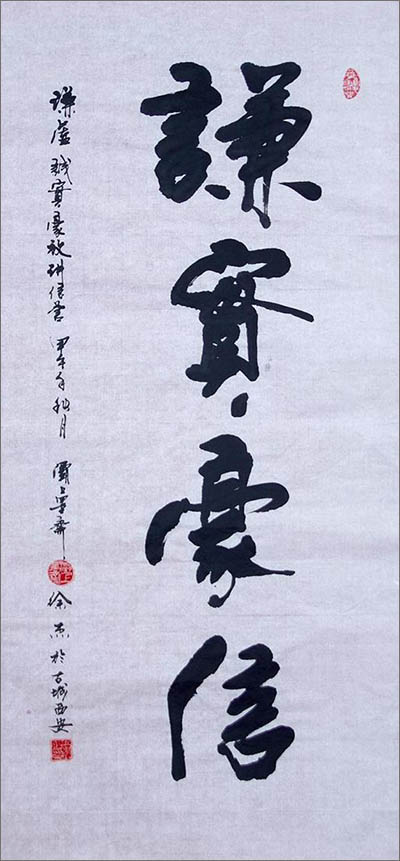 謙實豪信
謙虛 誠實 豪放 講信譽 甲午年秋月 賈上學齋 徐杰於古城西安